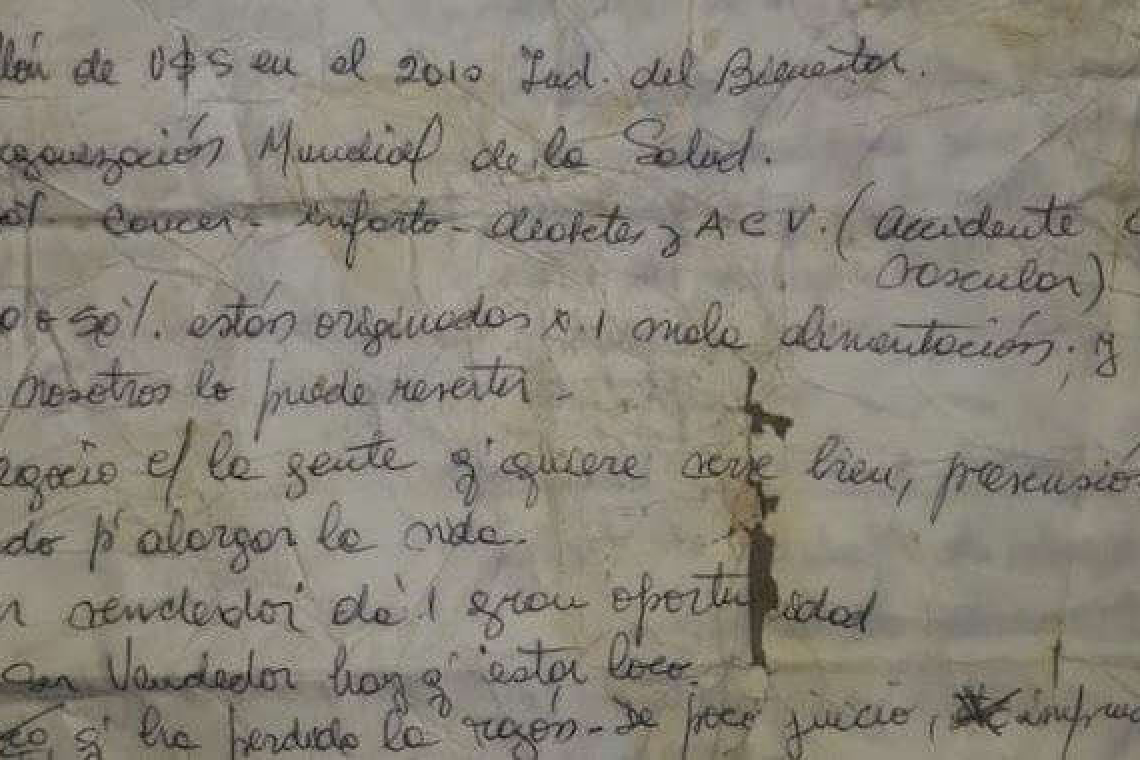 llón de U$S en el 2010 Ind. del Bienestar.
rganización Mundial de la Salud.
Cancer - infarto - diabetes y A C V. ( accidente c
vascular)
0 o 50%. están originados x. 1 mala alimentación; y
nosotros lo puede revertir -
egocio c/ la gente q' quiere verse bien, prevensión
do p' alargar la vida.
n vendedor da 1 gran oportunidad
Ser Vendedor hay q' estar loco.
q' ha perdido la razón - De poco juicio, impru